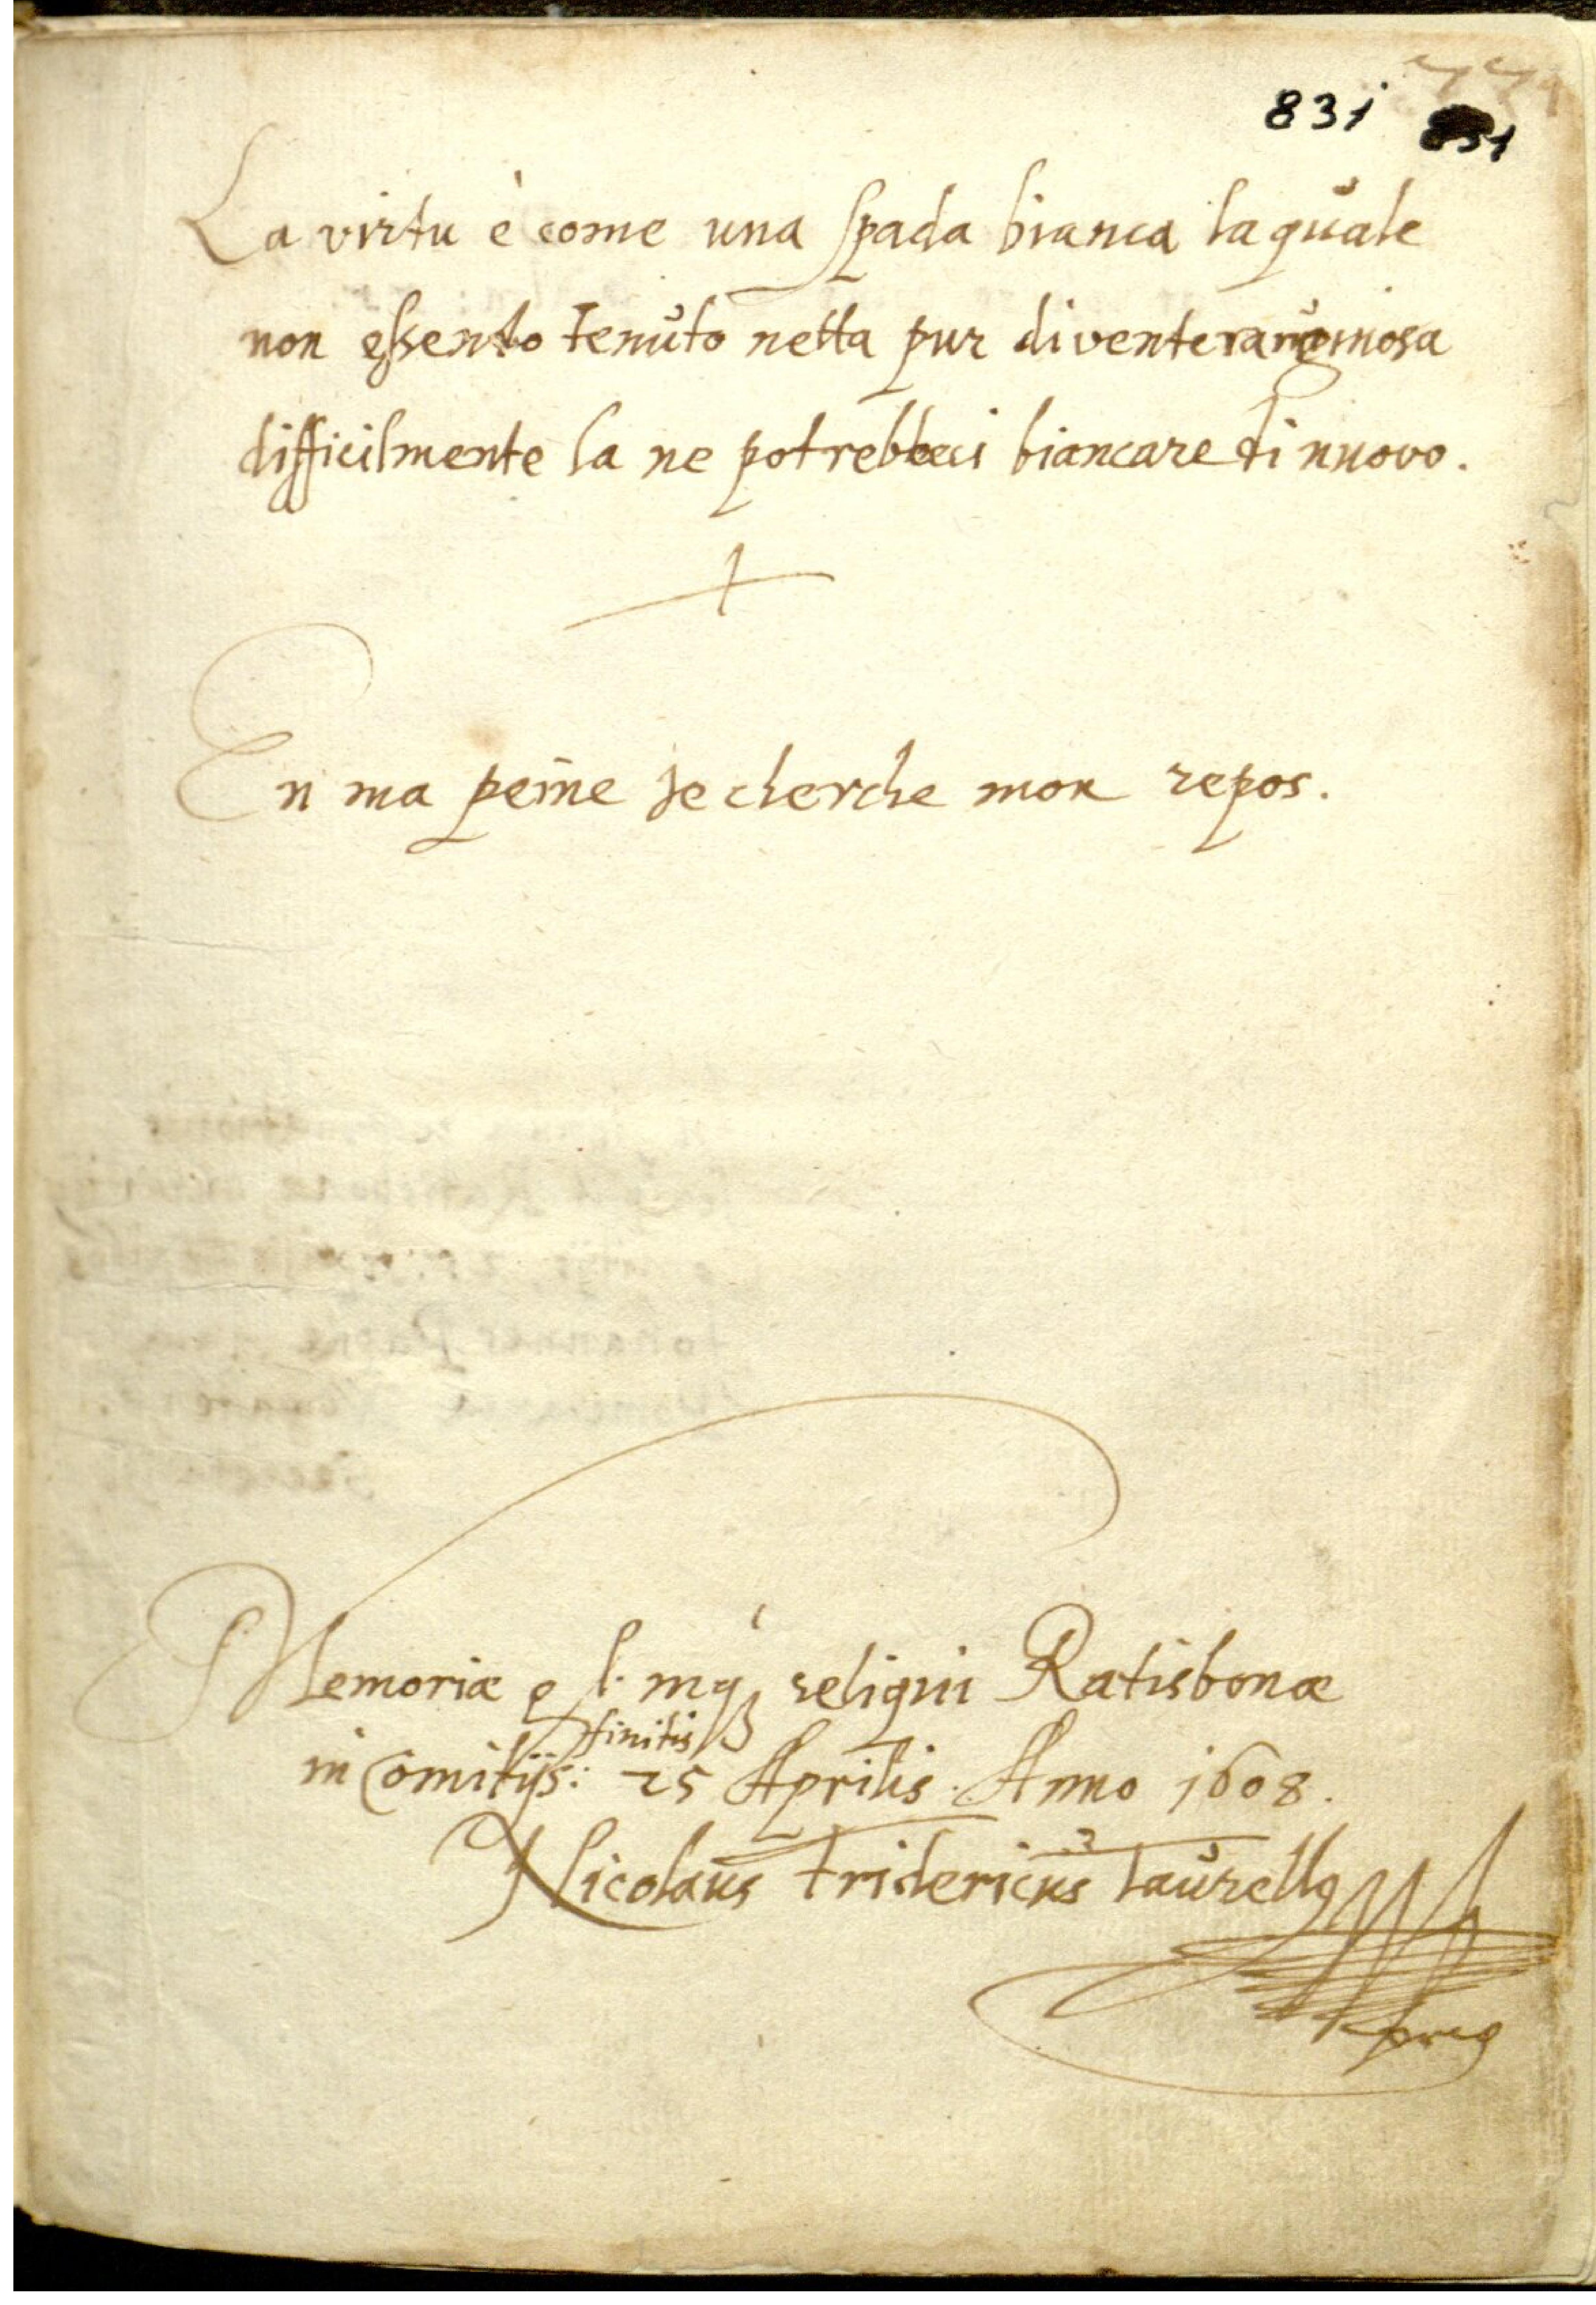 831 831
La virtu è come una spada bianca laquale
non essento tenuto netta pur diventera
difficilmente la ne biancare di nuovo.
En ma peine Je cherche mon repos.
Memoriæ reliqui Ratisbonæ
finitis
in Comitijs: 25 Aprilis. Anno 1608.
Nicolaus Fridericus Taurellq